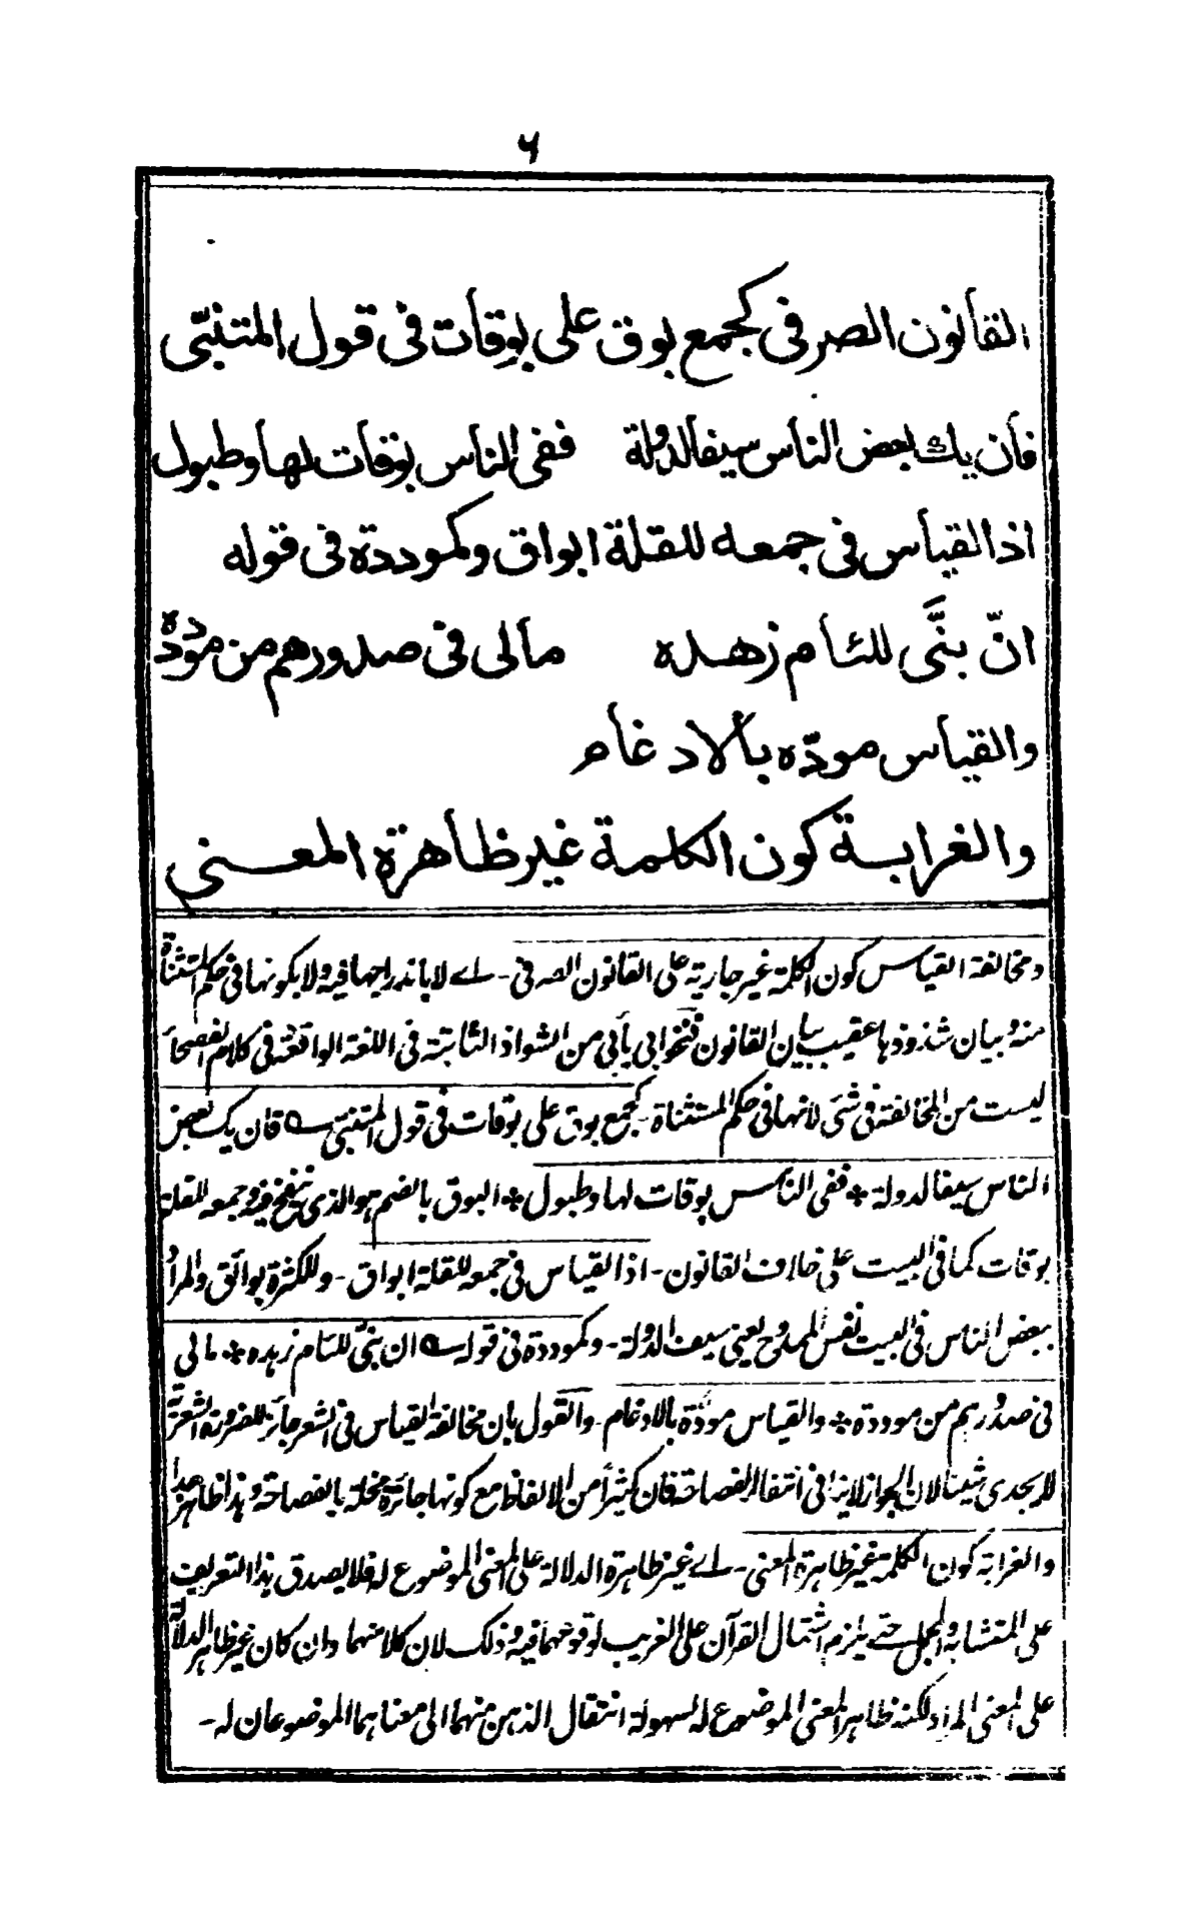 ۶
القانون الصرفى كجمع بوق على بوقات فى قول المتنبّى
فان يك بعض الناس سيفا لدولة ففى الناس بوقات لها وطبول
اذ القياس فى جمعه للقلة ابواق وكموددة فى قوله
انّ بنىَّ للئام زهده مالى فى صدورهم من موددة
والقياس مودّه بالادغام
والغرابة كون الكلمة غير ظاهرة المعنى
ومخالفة القياس كون الكلمة غير جارية على القانون الصرفى - اے لا باندراجها فيه ولا بكونها فى حكم المستثناة
منه وبيان شذوذها عقيب بيان القانون فنحو ابى يأبى من الشواذ الثابتة فى اللغة الواقعة فى كلام الفصحاء
ليست من المخالفة فى شئ لانها فى حكم المستثناة - كجمع بوق على بوقات فى قول المتنبى ؎ فان يك بعض
الناس سيفا لدولة * ففى الناس بوقات لها وطبول * البوق بالضم هو الذى ينفخ فيه وجمعه للقلة
بوقات كما فى البيت على خلاف القانون - اذ القياس فى جمعه للقلة ابواق - وللكثرة بوائق والمراد
ببعض الناس فى البيت نفس الممدوح يعنى سيف الدولة - وكموددة فى قوله ؎ ان بنىّ للئام زهده * مالى
فى صدورهم من موددة * والقياس مودّة بالادغام - والقول بان مخالفة القياس فى الشعر جائز للضرورة الشعرية
لا يجدى شيئا لان الجواز لا ينافى انتفاء الفصاحة فان كثيرا من الالفاظ مع كونها جائزة مخلة بالفصاحة وهذا ظاهر جدا
والغرابة كون الكلمة غير ظاهرة المعنى - اے غير ظاهرة الدلالة على المعنى الموضوع له فلا يصدق هذا التعريف
على المتشابه والمجمل حتے يلزم اشتمال القرآن على الغريب لوقوعهما فيه وذلك لان كلا منهما وان كان غير ظاهر الدلالة
على المعنى المراد لكنه ظاهر المعنى الموضوع له لسهولة انتقال الذهن منهما الى معناهما الموضوعان له -